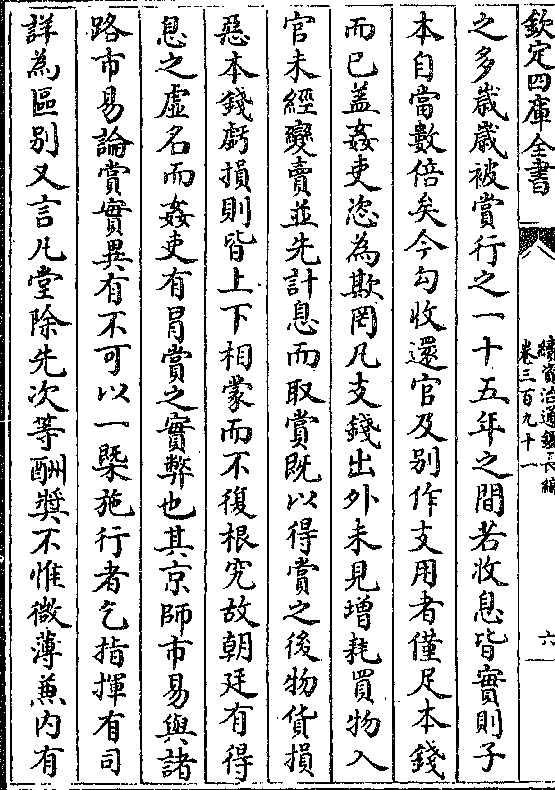 欽定四庫全書
續資治通鑑長編
卷三百九十一
六
之多歲歲被賞行之一十五年之間若收息皆實則子
本自當數倍矣今勾收還官及别作支用者僅足本錢
而已盖姦吏恣為欺罔凡支錢出外未見增耗買物入
官未經變賣並先計息而取賞既以得賞之後物貨損
惡本錢虧損則皆上下相蒙而不復根究故朝廷有得
息之虚名而姦吏有冐賞之實弊也其京師市易與諸
路市易論賞實異有不可以一槩施行者乞指揮有司
詳為區别又言凡堂除先次等酬奬不惟微薄兼内有